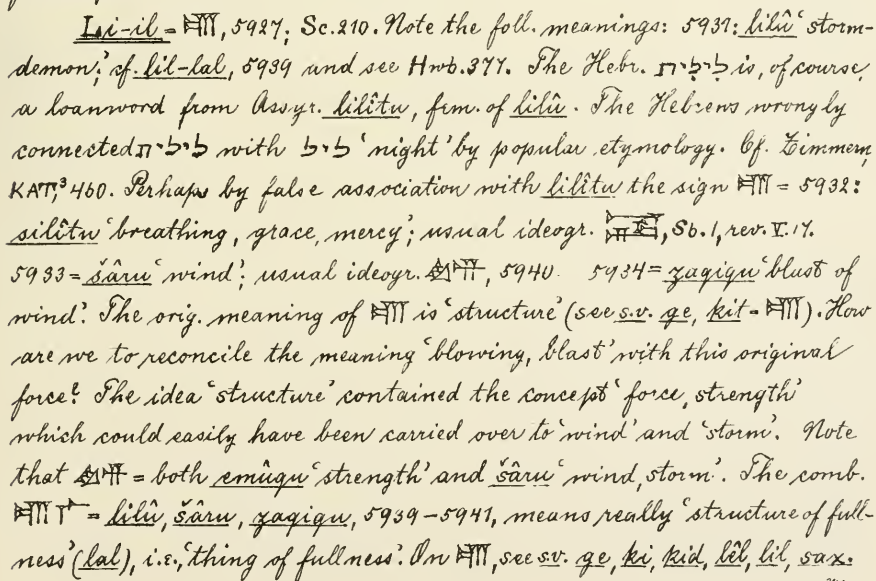 Li-il = 𒆤, 5927; Sc. 210. Note the foll. meanings: 5931: lilû 'storm-
demon'; cf. lil-lal, 5939 and see Hwb. 377. The Hebr. לילית is, of course,
a loanword from Assyr. lilîtu, fem. of lilû. The Hebrews wrongly
connected לילית with ליל 'night' by popular etymology. Cf. Zimmern,
KAT,³ 460. Perhaps by false association with lilîtu the sign 𒆤 = 5932:
silîtu 'breathing, grace, mercy'; usual ideogr. Sb. 1, rev. V. 17.
5933 = šâru 'wind'; usual ideogr. 5940. 5934 = zaqiqu 'blast of
wind.' The orig. meaning of 𒆤 is 'structure' (see s.v. ge, kit = 𒆤). How
are we to reconcile the meaning 'blowing, blast' with this original
force? The idea 'structure' contained the concept 'force, strength'
which could easily have been carried over to 'wind' and 'storm'. Note
that = both emûqu 'strength' and šâru 'wind, storm'. The comb.
𒆤 𒇲 = lilû, šâru, zaqiqu, 5939-5941, means really 'structure of full-
ness' (lal), i.e., 'thing of fullness'. On 𒆤, see s.v. ge, ki, kid, lêl, lil, sax.